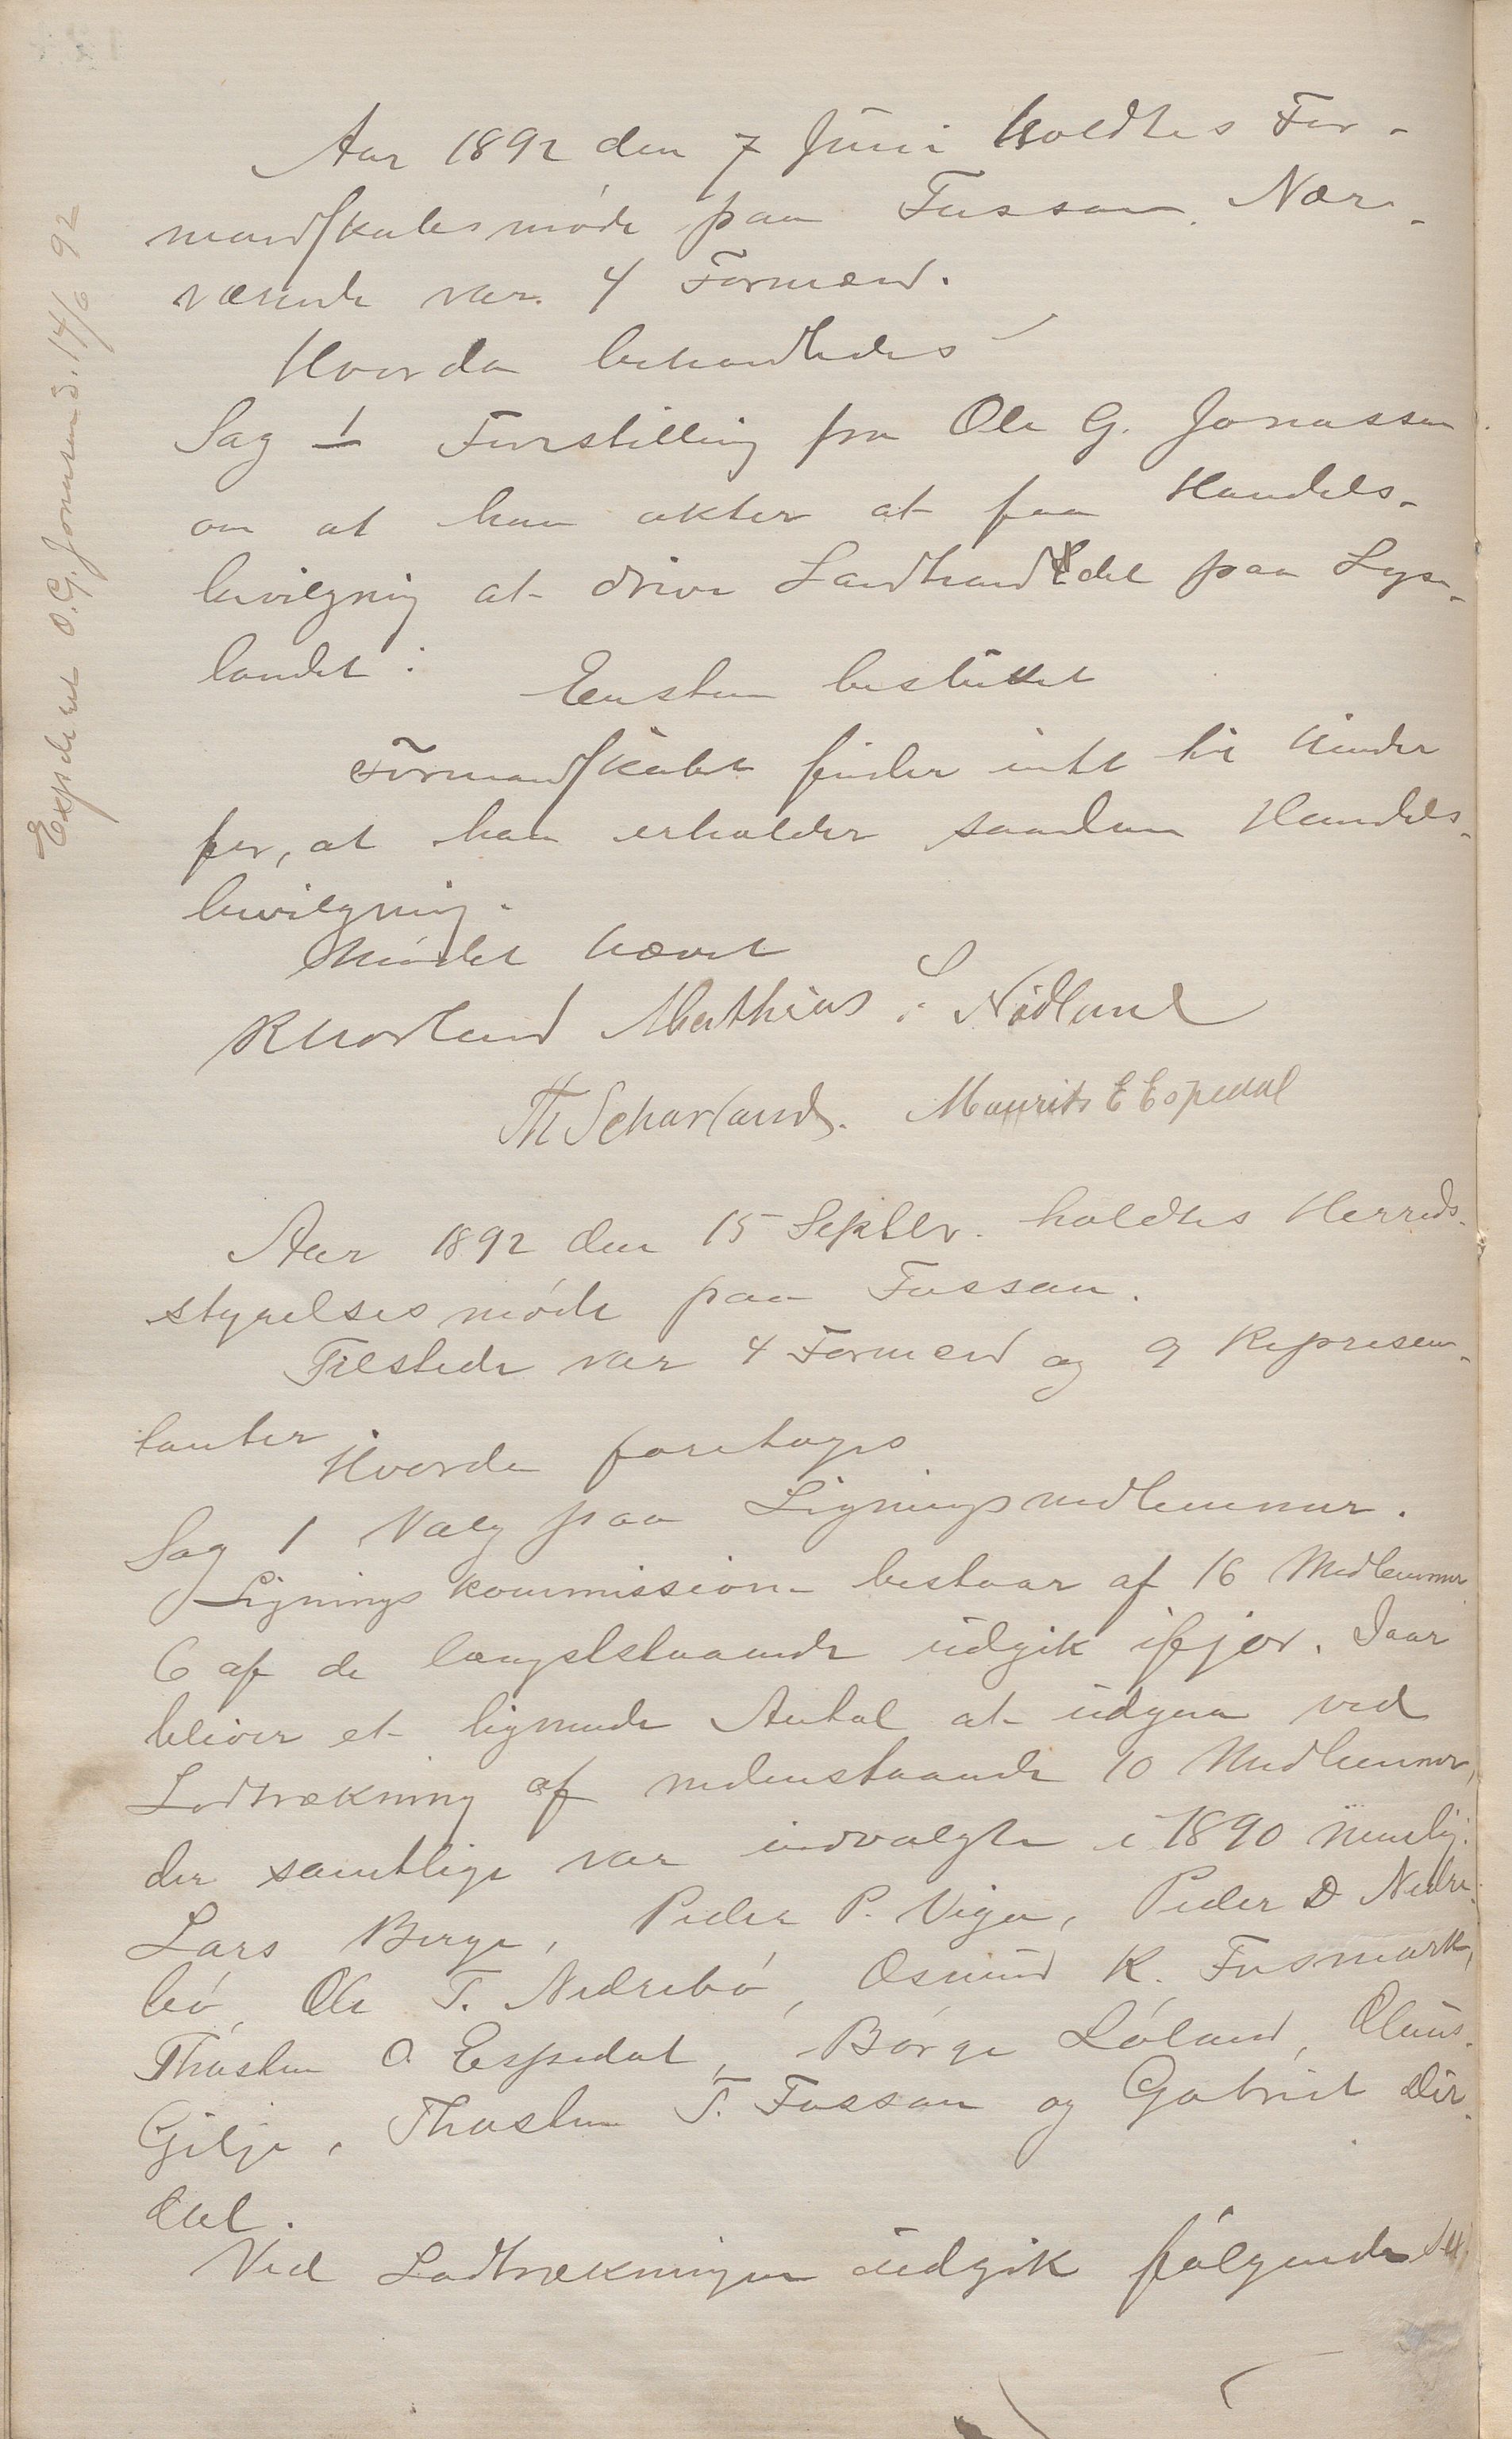 Aar 1892 den 7 Juni holdtes For-
mandskabsmöde paa Fossan. Nær-
værende var 4 Formænd.
Hvorda behandledes
Sag 1 Forestilling fra Ole G. Jonassen
om at han akter at faa Handels-
bevilgning at drive Landhandel paa Lyse-
landet:
Enstem besluttet
Formandskabet finder intet til Hinder
for, at han erholder saadan Handels-
bevilgning.
Mödet hævet
Mathias S Nödland
Th Scharland. Maurits E Espedal
Aar 1892 den 15 Septbr. holdtes Herreds-
styrelsesmöde paa Fossan.
Tilstede var 4 Formænd og 9 Represen-
tanter.
Hvorda foretoges
Sag 1 Valg paa Ligningsmedlemmer.
Ligningskommission bestaar af 16 Medlemmer
6 af de længststaaende udgik ifjor. Iaar
bliver et lignende Antal at udgaa ved
Lodtrækning af nedenstaaende 10 Medlemmer,
der samtlige var indvalgte i 1890 nemlig:
Lars Berge, Peder P. Viga, Peder D Nedre-
bö, Ole T. Nedrebö, Osmund K. Fosmark,
Thosten O. Espedal, Börge Löland, Olaus
Gilje, Thosten T. Fossan og Gabriel Dir-
dal.
Ved Lodtrækningen udgik fölgende
Expederet O. G. Jonassen d. 14/6 92